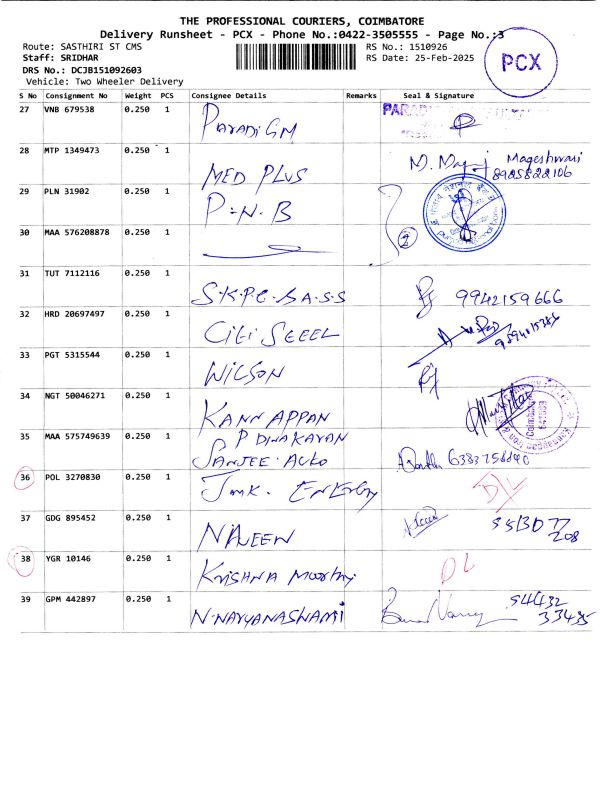 THE PROFESSIONAL COURIERS, COIMBATORE
Delivery Runsheet - PCX - Phone No.:0422-3505555 - Page No.:3
Route: SASTHIRI ST CMS RS No.: 1510926
Staff: SRIDHAR RS Date: 25-Feb-2025
DRS No.: DCJB151092603
Vehicle: Two Wheeler Delivery
PCX
S No Consignment No Weight PCS Consignee Details Remarks Seal & Signature
27 VNB 679538 0.250 1 ParadiGM
28 MTP 1349473 0.250 1 MED PLUS Mageshwari
8925822106
29 PLN 31902 0.250 1 P-N-B
30 MAA 576208878 0.250 1 2
31 TUT 7112116 0.250 1 S.K.P.C.B.A.S.S 9942159666
32 HRD 20697497 0.250 1 CiTi SEEEL
33 PGT 5315544 0.250 1 WILSON
34 NGT 50046271 0.250 1 KANNAPPAN
35 MAA 575749639 0.250 1 P DINAKARAN
SANJEE AUTO
36 POL 3270830 0.250 1 JMK. ENERGY D/L
37 GDG 895452 0.250 1 NAVEEN
38 YGR 10146 0.250 1 Krishna Moorthy DL
39 GPM 442897 0.250 1 N.NARYANASWAMI 94432
33435